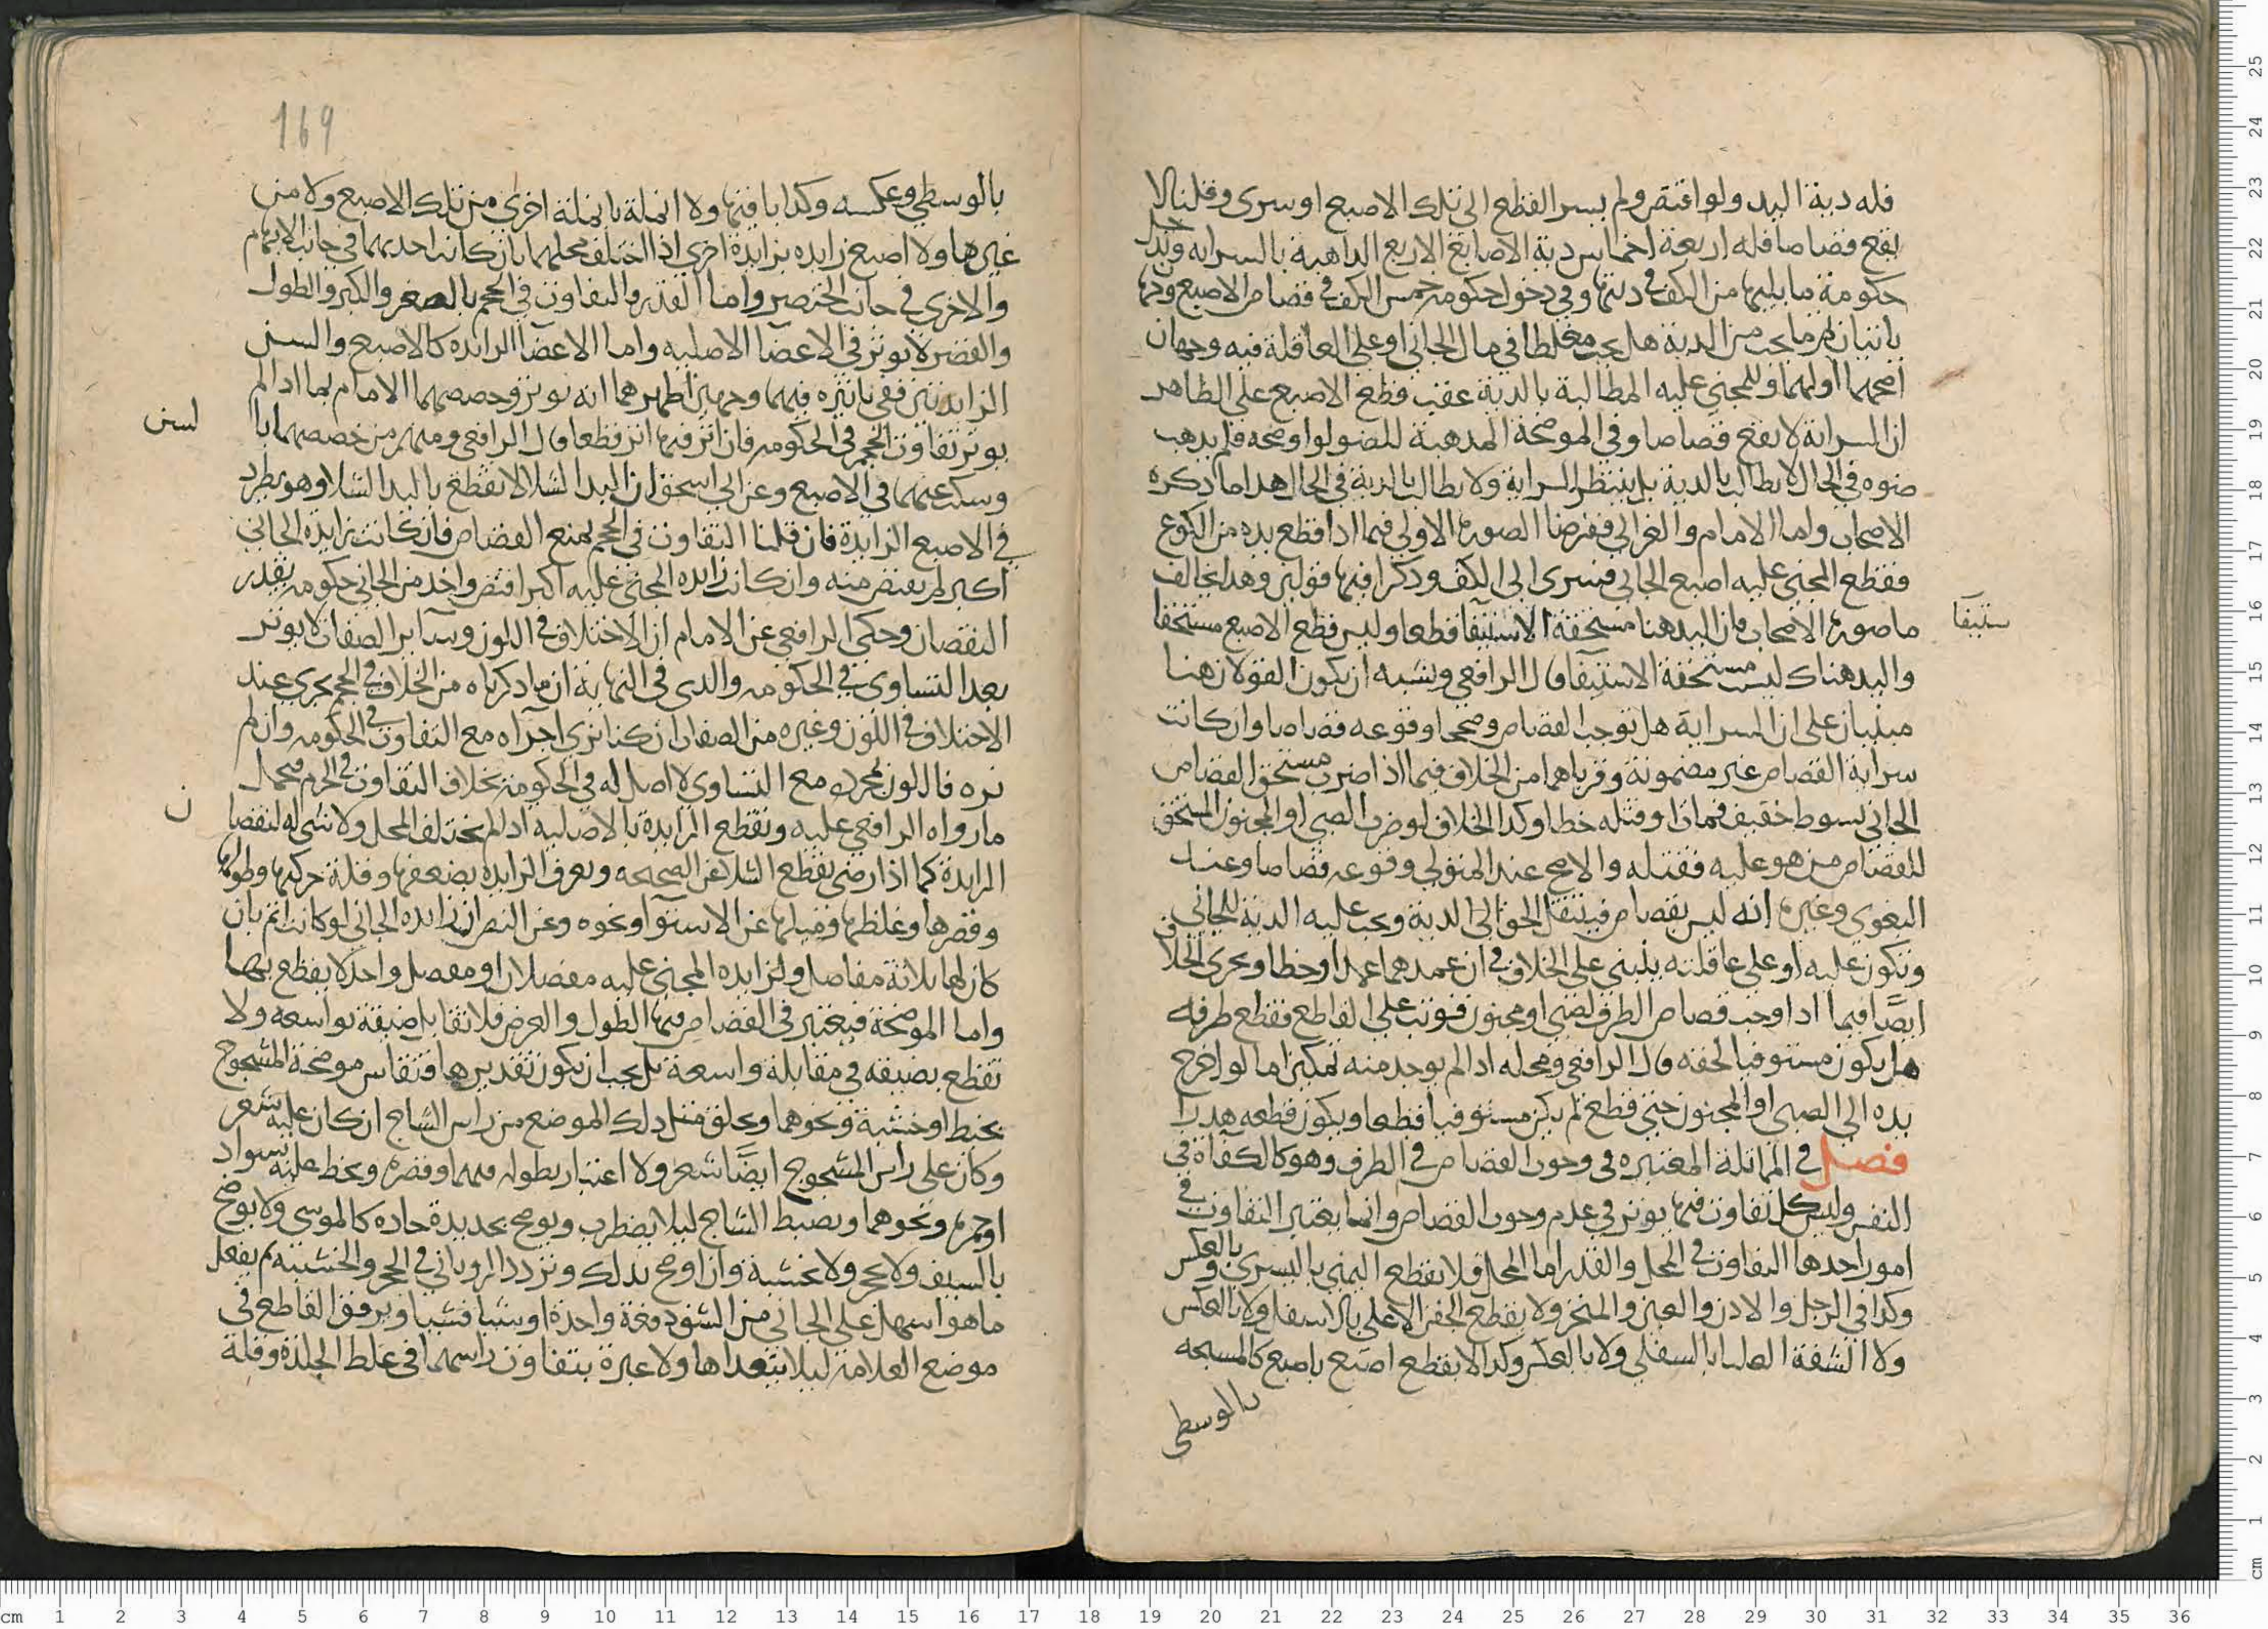 فله دية اليد ولو اقتص ولم يسر القطع الى تلك الاصبع او سرى وقلنا لا
يقع قصاصا فله اربعة اخماس دية الاصابع الاربع الذاهبة بالسراية ويدخل
حكومة ما يليها من الكف في ديتها وفي دخول حكومة خمس الكف في قصاص الاصبع وجها
ياتيان ثم ما يجب من الدية هل يجب مغلظا في مال الجاني او على العاقلة فيه وجهان
اصحهما اولهما وللمجني عليه المطالبة بالدية عقب قطع الاصبع على الظاهر
ان السراية لا تقع قصاصا وفي الموضحة المذهبة للضو لو اوضحه فلم يذهب
ضوه في الحال لا يطالب بالدية بل ينتظر السراية ولا يطالب بالدية في الحال هذا ما ذكره
الاصحاب واما الامام والغزالي ففرضا الصورة الاولى فيما اذا قطع يده من الكوع
فقطع المجني عليه اصبع الجاني فسرى الى الكف وذكرا فيها قولين وهذا يخالف
ما صوره الاصحاب فان اليد هنا مستحقة الاستيفا قطعا وليس قطع الاصبع مستحقا
ستيفا
واليد هناك ليست مستحقة الاستيفا قال الرافعي ويشبه ان يكون القولان هنا
مبنيان على ان السراية هل توجب القصاص وصححا وقوعه قصاصا وان كانت
سراية القصاص غير مضمونة وقرباهما من الخلاف فيما اذا ضرب مستحق القصاص
الجاني بسوط خفيف فمات او قتله خطا وكذا الخلاف لو ضرب الصبي او المجنون المستحق
للقصاص من هو عليه فقتله والاصح عند المتولي وقوعه قصاصا وعند
البغوي وغيره انه ليس بقصاص فينتقل الحق الى الدية ويجب عليه الدية للجاني
وتكون عليه او على عاقلته ينبني على الخلاف في ان عمدهما عمد او خطا ويجري الخلاف
ايضا فيما اذا وجب قصاص الطرف لصبي او مجنون فوثب على القاطع فقطع طرفه
هل يكون مستوفيا لحقه قال الرافعي ومحله اذا لم يوجد منه تمكين اما لو اخرج
يده الى الصبي او المجنون حتى قطع لم يكن مستوفيا قطعا ويكون قطعه هدرا
فصل في المماثلة المعتبرة في وجوب القصاص في الطرف وهو كالكفاة في
النفس وليس كل تفاوت فيها يوثر في عدم وجوب القصاص وانما يعتبر التفاوت في
امور احدها التفاوت في المحل والقدر اما المحل فلا تقطع اليمنى باليسرى وبالعكس
وكذا في الرجل والاذن والعين والمنخر ولا يقطع الجفن الاعلى بالاسفل ولا بالعكس
ولا الشفة العليا بالسفلى ولا بالعكس وكذا لا يقطع اصبع باصبع كالمسبحه
بالوسطى
169
بالوسطي وعكسه وكذا باقيها ولا انملة بانملة اخرى من تلك الاصبع ولا من
غيرها ولا اصبع زايده بزايدة اخرى اذا اختلف محلهما بان كانت احديهما في جانب الابهام
والاخرى في جانب الخنصر واما القدر والتفاوت في الحجم بالصغر والكبر والطول
والقصر لا يوثر في الاعضا الاصليه واما الاعضا الزائده كالاصبع والسن
الزايدتين ففي تاثيره فيهما وجهين اظهرهما انه يوثر وخصصهما الامام بما اذا لم
يوثر تفاوت الحجم في الحكومه فان اثر فيها اثر قطعا قال الرافعي ومنهم من خصصهما با
لسن
وسكت عنهما في الاصبع وعن ابي اسحق ان اليد الشلا لا تقطع باليد الشلا وهو يطرد
في الاصبع الزايدة فان قلنا التفاوت في الحجم يمنع القصاص فان كانت زايدة الجاني
اكبر لم يقتص منه وان كانت زايده المجني عليه اكبر اقتص واخذ من الجاني حكومه بقدر
النقصان وحكى الرافعي عن الامام ان الاختلاف في اللون وساير الصفات لا يوثر
بعد التساوي في الحكومه والذي في النهاية ان ما ذكرناه من الخلاف في الحجم يجري عند
الاختلاف في اللون وغيره من الصفات ان كنا نرى اجراه مع التفاوت في الحكومه وان لم
نره فاللون بمجرده مع التساوي لا اصل له في الحكومة بخلاف التفاوت في الجرم فيحمل
ما رواه الرافعي عليه وتقطع الزايدة بالاصليه اذا لم يختلف المحل ولا شي له لنقصا
ن
الزايدة كما اذا رضي بقطع الشلا عن الصحيحه ويعرف الزايده بضعفها وقلة حركتها وطولها
وقصرها وغلظها وميلها عن الاستوا ونحوه وعن النص ان زايده الجاني لو كانت اتم بان
كان لها ثلاثة مفاصل ولزايده المجني عليه مفصلان او مفصل واحد لا يقطع بها
واما الموضحة فيعتبر في القصاص فيها الطول والعرض فلا تقابل ضيقة بواسعه ولا
تقطع بضيقه في مقابلة واسعة بل يجب ان يكون تقديرها وتقاس موضحة المشجوج
بخيط او خشبة ونحوهما ويحلق مثل ذلك الموضع من راس الشاج ان كان عليه شعر
وكان على راس المشجوج ايضا شعر ولا اعتبار بطوله فيهما وقصره ويخط عليه بسواد
او حمره ونحوهما ويضبط الشاج ليلا يضطرب ويوضح بحديدة حاده كالموسى ولا يوضح
بالسيف ولا بحجر ولا بخشبة وان اوضح بذلك وتردد الروياني في الحجر والخشبه ثم يفعل
ما هو اسهل على الجاني من الشق دفعة واحدة او شيا فشيا ويرفق القاطع في
موضع العلامه ليلا يتعداها ولا عبرة بتفاوت راسهما في غلظ الجلدة وقلة